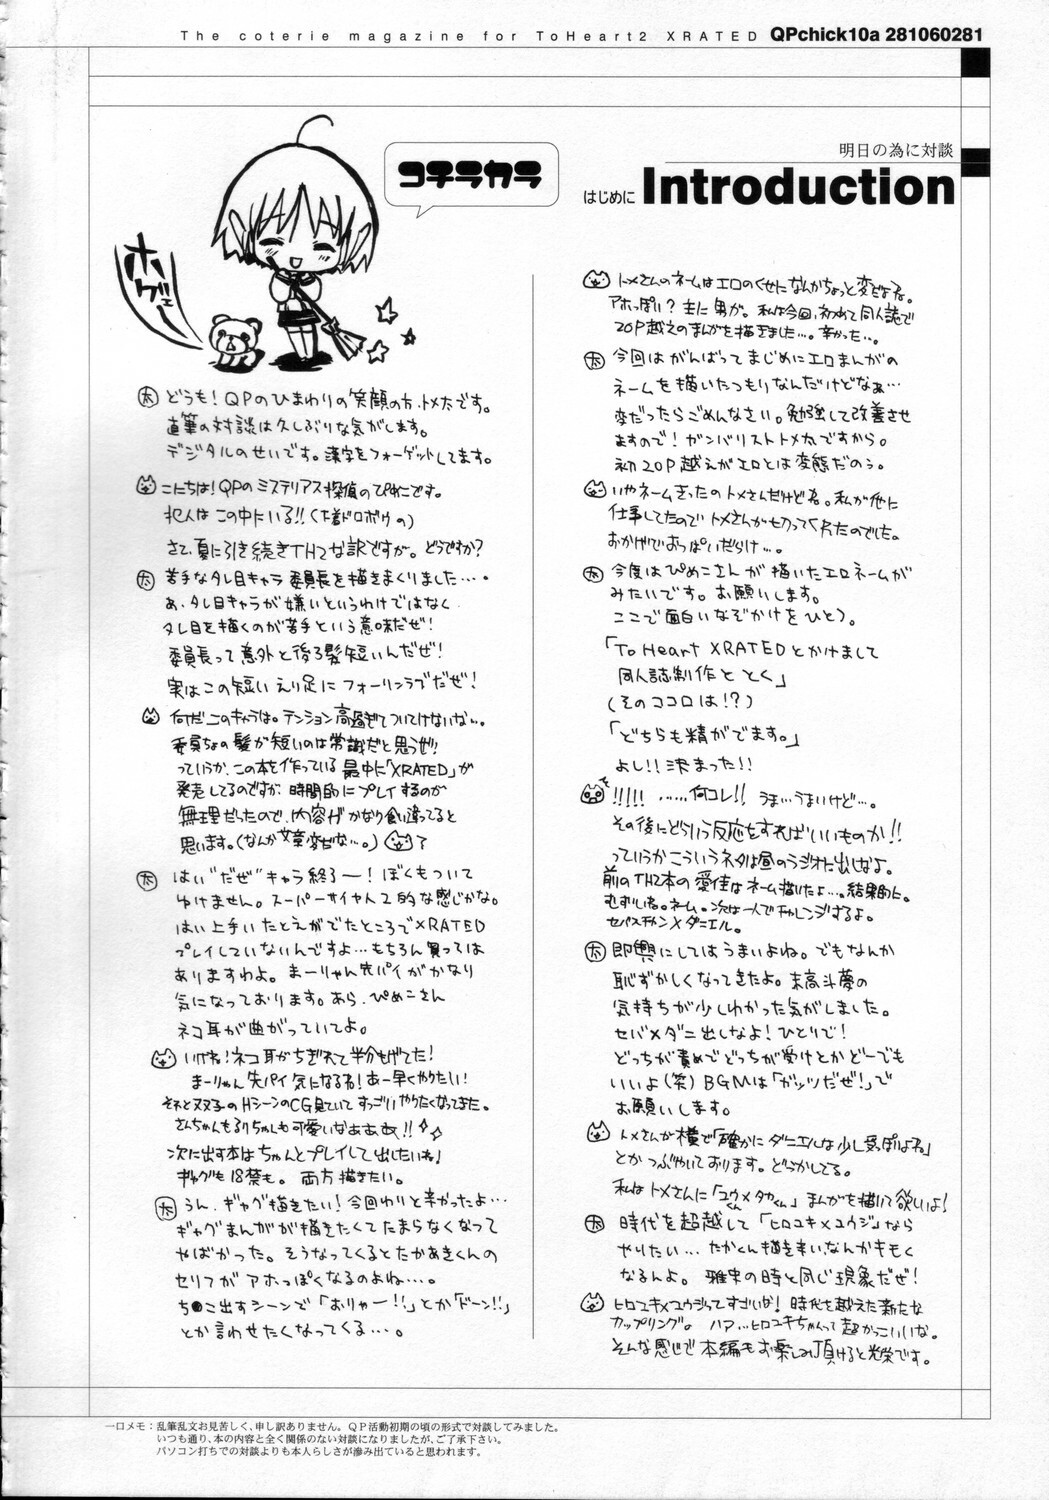 The coterie magazine for ToHeart2 XRATED QPchick10a 281060281
明日の為に対談
はじめに Introduction
コチラカラ
ホゲェー
太 どうも!QPのひまわりの笑顔の方、トメ太です。
直筆の対談は久しぶりな気がします。
デジタルのせいです。漢字をフォーゲットしてます。
こにちは!QPのミステリアス探偵のぴめこです。
犯人はこの中にいる!!(下着ドロボウの)
さて、夏に引き続きTH2な訳ですが。どうですか?
太 苦手なタレ目キャラ委員長を描きまくりました…。
あ、タレ目キャラが嫌いというわけではなく
タレ目を描くのが苦手という意味だぜ!
委員長って意外と後ろ髪短いんだぜ!
実はこの短いえり足にフォーリンラブだぜ!
何だこのキャラは。テンション高過ぎてついてけないな…。
委員ちょの髪が短いのは常識だと思うぜ!
っていうか、この本を作っている最中に「XRATED」が
発売してるのですが、時間的にプレイするのが
無理だったので、内容がかなり食い違ってると
思います。(なんか文章変だな…。)
太 はい“だぜ”キャラ終了ー!ぼくもついて
ゆけません。スーパーサイヤ人2的な感じかな。
はい上手いたとえがでたところでXRATED
プレイしていないんですよ…もちろん買っては
ありますわよ。まーりゃん先パイがかなり
気になっております。あら、ぴめこさん
ネコ耳が曲がっていてよ。
いけね!ネコ耳がちぎれて半分もげてた!
まーりゃん先パイ気になるね!あー早くやりたい!
それと双子のHシーンのCG見ていてすっごいやりたくなってきた。
さんちゃんもるりちゃんも可愛いなぁぁぁ!!
次に出す本はちゃんとプレイして出したいね!
ギャグも18禁も。両方描きたい。
太 うん、ギャグ描きたい!今回わりと辛かったよ…
ギャグまんがが描きたくてたまらなくなって
やばかった。そうなってくるとたかあきくんの
セリフがアホっぽくなるのよね…。
ち●こ出すシーンで「おりゃー!!」とか「ドーン!!」
とか言わせたくなってくる…。
トメさんのネームはエロのくせになんかちょっと変だよね。
アホっぽい?主に男が。私は今回、初めて同人誌で
20P越えのまんがを描きました…。辛かった…。
太 今回はがんばってまじめにエロまんがの
ネームを描いたつもりなんだけどなぁ…
変だったらごめんなさい。勉強して改善させ
ますので!ガンバリストトメ太ですから。
初20P越えがエロとは変態だのぅ。
いやネームきったのトメさんだけどね。私が他に
仕事してたのでトメさんがセクってくれたのでした。
おかげでおっぱいだらけ…。
太 今度はぴめこさんが描いたエロネームが
みたいです。お願いします。
ここで面白いなぞかけをひとつ。
「To Heart XRATEDとかけまして
同人誌制作ととく」
(そのココロは!?)
「どちらも精がでます。」
よし!!決まった!!
!!!!! ……何コレ!! うま…うまいけど…。
その後にどういう反応をすればいいものか!!
っていうかこういうネタは昼のラジオに出しなよ。
前のTH2本の愛佳はネーム描いたよ…。結果的に。
むずいね。ネーム。次は一人でチャレンジするよ。
セバスチャン×ダニエル。
太 即興にしてはうまいよね。でもなんか
恥ずかしくなってきたよ。末高斗夢の
気持ちが少しわかった気がしました。
セバ×ダニ出しなよ!ひとりで!
どっちが責めでどっちが受けとかどーでも
いいよ(笑)BGMは「ガッツだぜ!」で
お願いします。
トメさんが横で「確かにダニエルは少し受っぽいよね」
とかつぶやいております。どうかしてる。
私はトメさんに「ユウくん×タカくん」まんがを描いて欲しいよ!
太 時代を超越して「ヒロユキ×ユウジ」なら
やりたい…たかくん描き辛い、なんかキモく
なるんよ。雅史の時と同じ現象だぜ!
ヒロユキ×ユウジってすごいな!時代を越えた新たな
カップリング。ハァ…ヒロユキちゃんって超かっこいいな。
そんな感じで本編もお楽しみ頂けると光栄です。
一口メモ:乱筆乱文お見苦しく、申し訳ありません。QP活動初期の頃の形式で対談してみました。
いつも通り、本の内容と全く関係のない対談になりましたが、ご了承下さい。
パソコン打ちでの対談よりも本人らしさが滲み出ていると思われます。